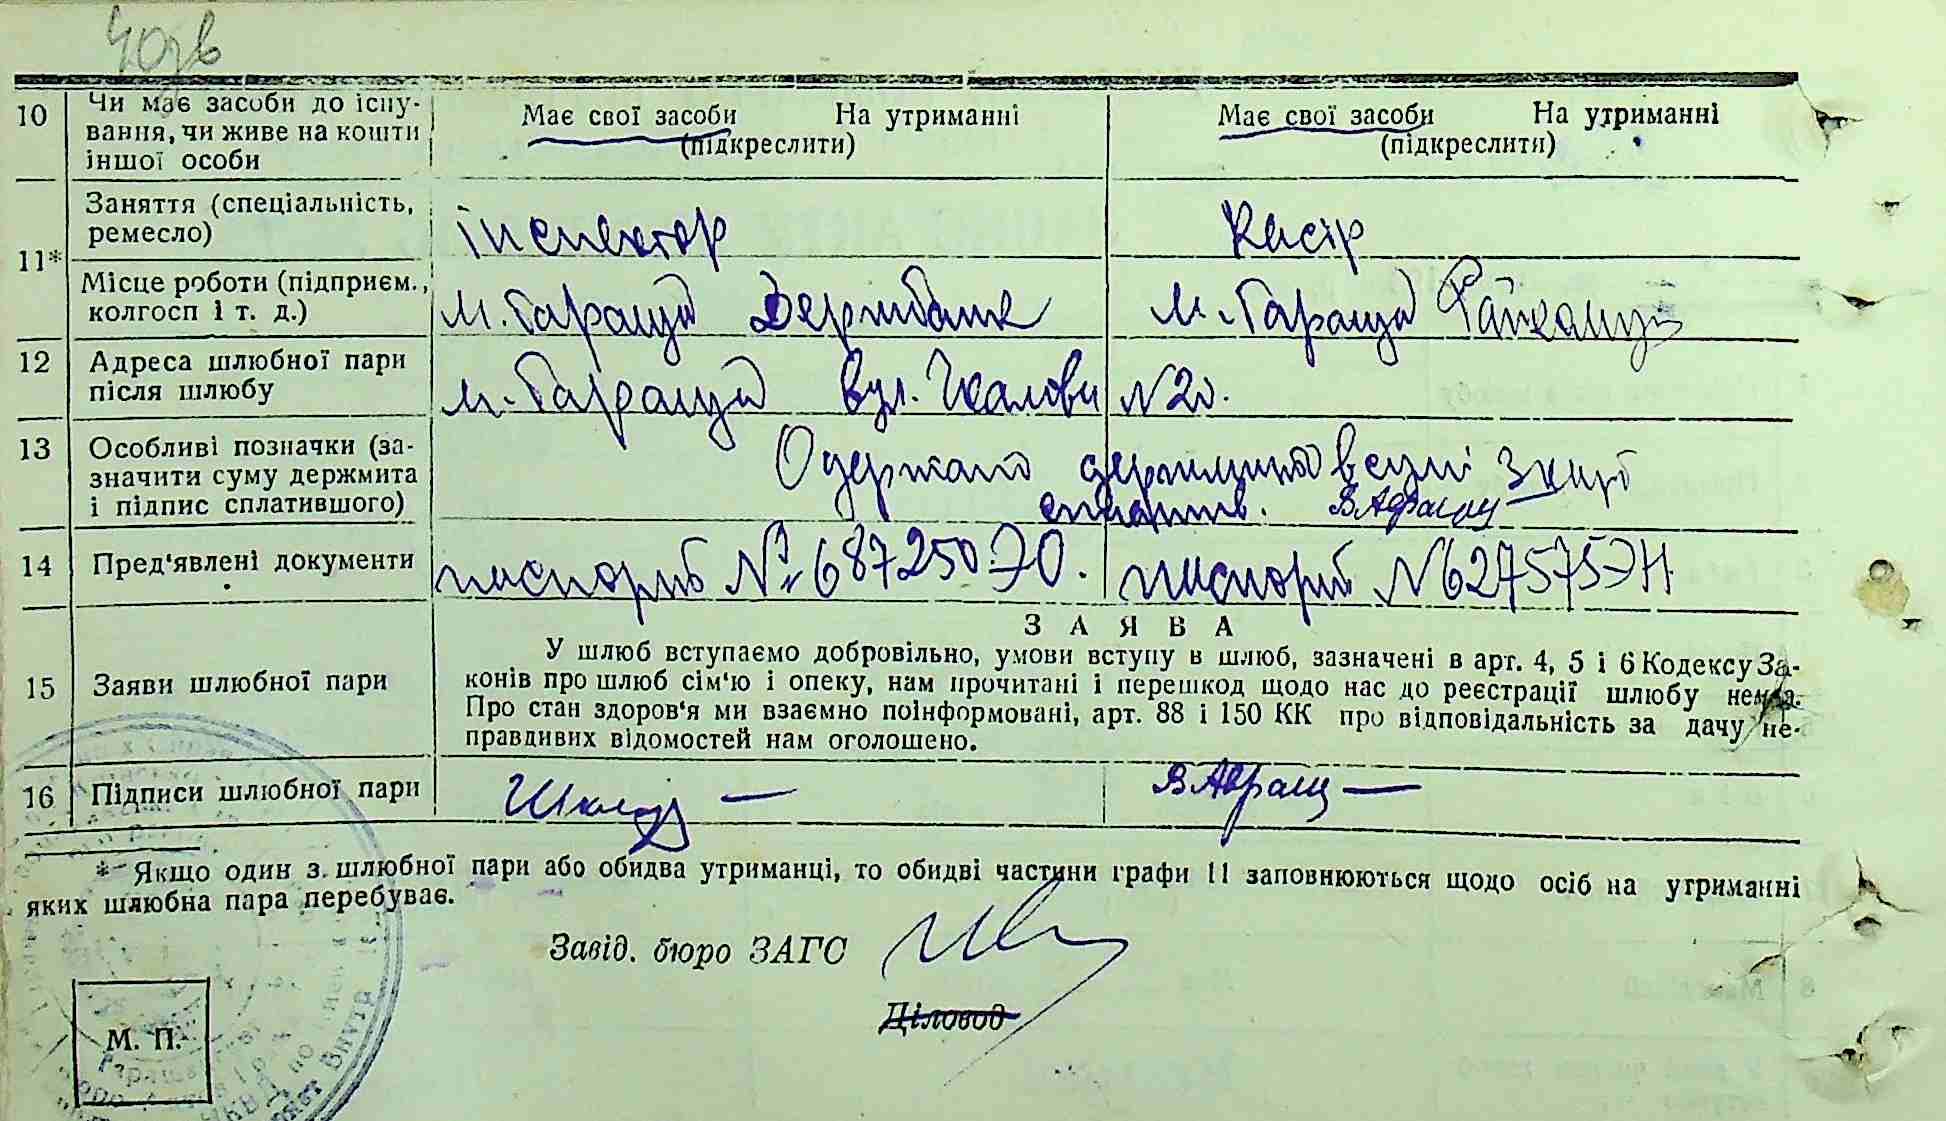 40зв
10 Чи має засоби до існу- Має свої засоби На утриманні Має свої засоби На утриманні
вання, чи живе на кошти (підкреслити) (підкреслити)
іншої особи
Заняття (спеціальність, інспектор Касір
ремесло)
11*
Місце роботи (підприєм., м. Тараща Держбанк м. Тараща
колгосп і т. д.)
12 Адреса шлюбної пари м. Тараща вул. Чкалова №20.
після шлюбу
13 Особливі позначки (за- Одержано держмито в сумі
значити суму держмита
і підпис сплатившого)
14 Пред'явлені документи паспорт № 687250 ЭО. паспорт № 627575 ЭН
З А Я В А
15 Заяви шлюбної пари У шлюб вступаємо добровільно, умови вступу в шлюб, зазначені в арт. 4, 5 і 6 Кодексу За-
конів про шлюб сім'ю і опеку, нам прочитані і перешкод щодо нас до реєстрації шлюбу нема.
Про стан здоров'я ми взаємно поінформовані, арт. 88 і 150 КК про відповідальність за дачу не-
правдивих відомостей нам оголошено.
16 Підписи шлюбної пари
* Якщо один з шлюбної пари або обидва утриманці, то обидві частини графи 11 заповнюються щодо осіб на утриманні
яких шлюбна пара перебуває.
Завід. бюро ЗАГС
Діловод
М. П.